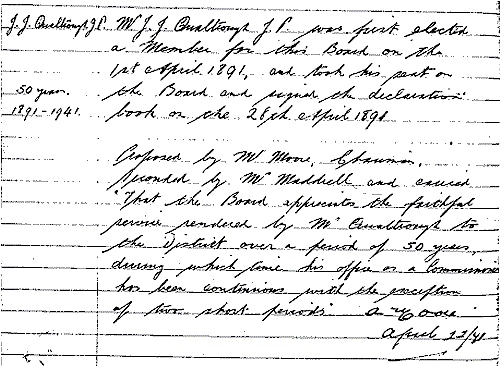 J. J. Qualtrough J.P. Mr J. J. Qualtrough J.P. was first elected
a Member for this Board on the
1st April 1891, and took his seat on
50 years. the Board and signed the declaration
1891-1941. book on the 28th April 1891
Proposed by Mr Moore, Chairman,
Seconded by Mr Maddrell and carried
"That the Board appreciates the faithful
service rendered by Mr Qualtrough to
the District over a period of 50 years,
during which time his office as a Commissioner
has been continuous with the exception
of two short periods"
April 22/41